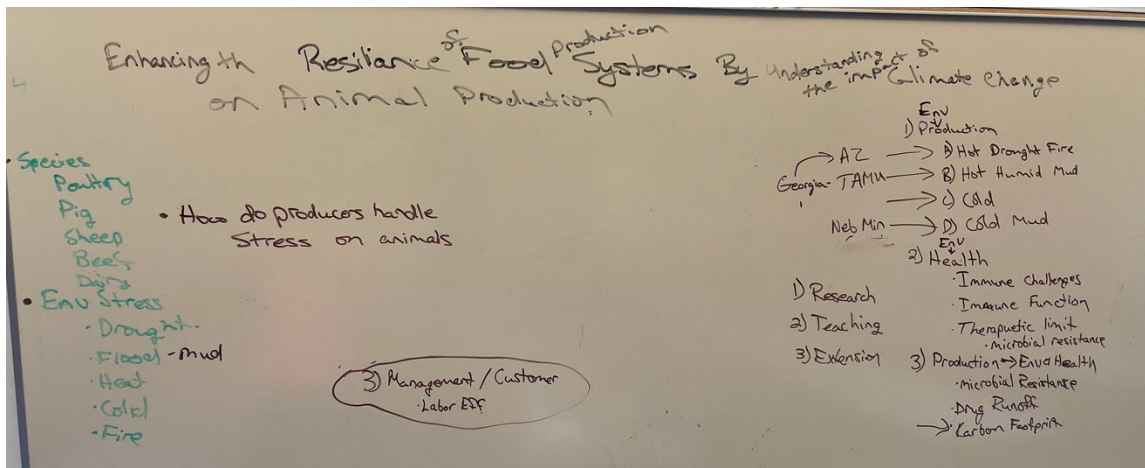 Enhancing th Resiliance of Food Production Systems By understanding the impact of Climate Change
on Animal Production
• Species
Poultry
Pig
Sheep
Beef
Dairy
• Env Stress
• Drought
• Flood - mud
• Heat
• Cold
• Fire
• How do producers handle
Stress on animals
3) Management / Customer
• Labor Eff
1) Research
2) Teaching
3) Extension
Env
1) Production
AZ → A) Hot Drought Fire
Georgia - TAMU → B) Hot Humid Mud
→ C) Cold
Neb Min → D) Cold Mud
Env
2) Health
• Immune Challenges
• Immune Function
• Therapuetic limit
• microbial resistance
3) Production → Env & Health
• microbial Resistance
• Drug Runoff
→ • Karbon Footprint